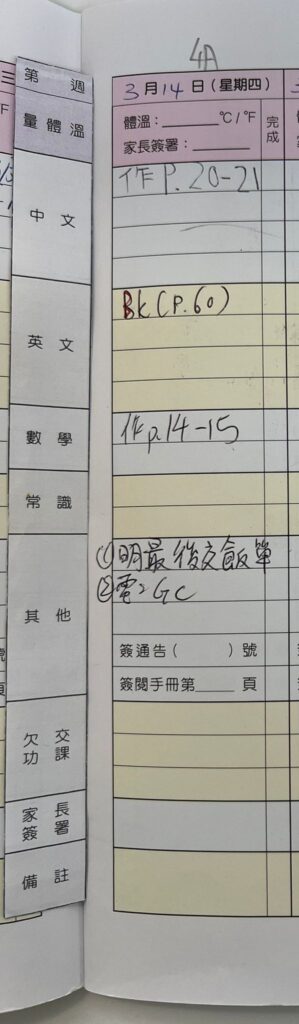 4A
第 週
3月14日(星期四)
量體溫
體溫：______°C/°F
家長簽署：______
完成
中文
作 P. 20-21
英文
Bk (P. 60)
數學
作 p.14-15
常識
其他
①明最後交飯單
②電：GC
簽通告( )號
簽閱手冊第____頁
欠交功課
家長簽署
備註